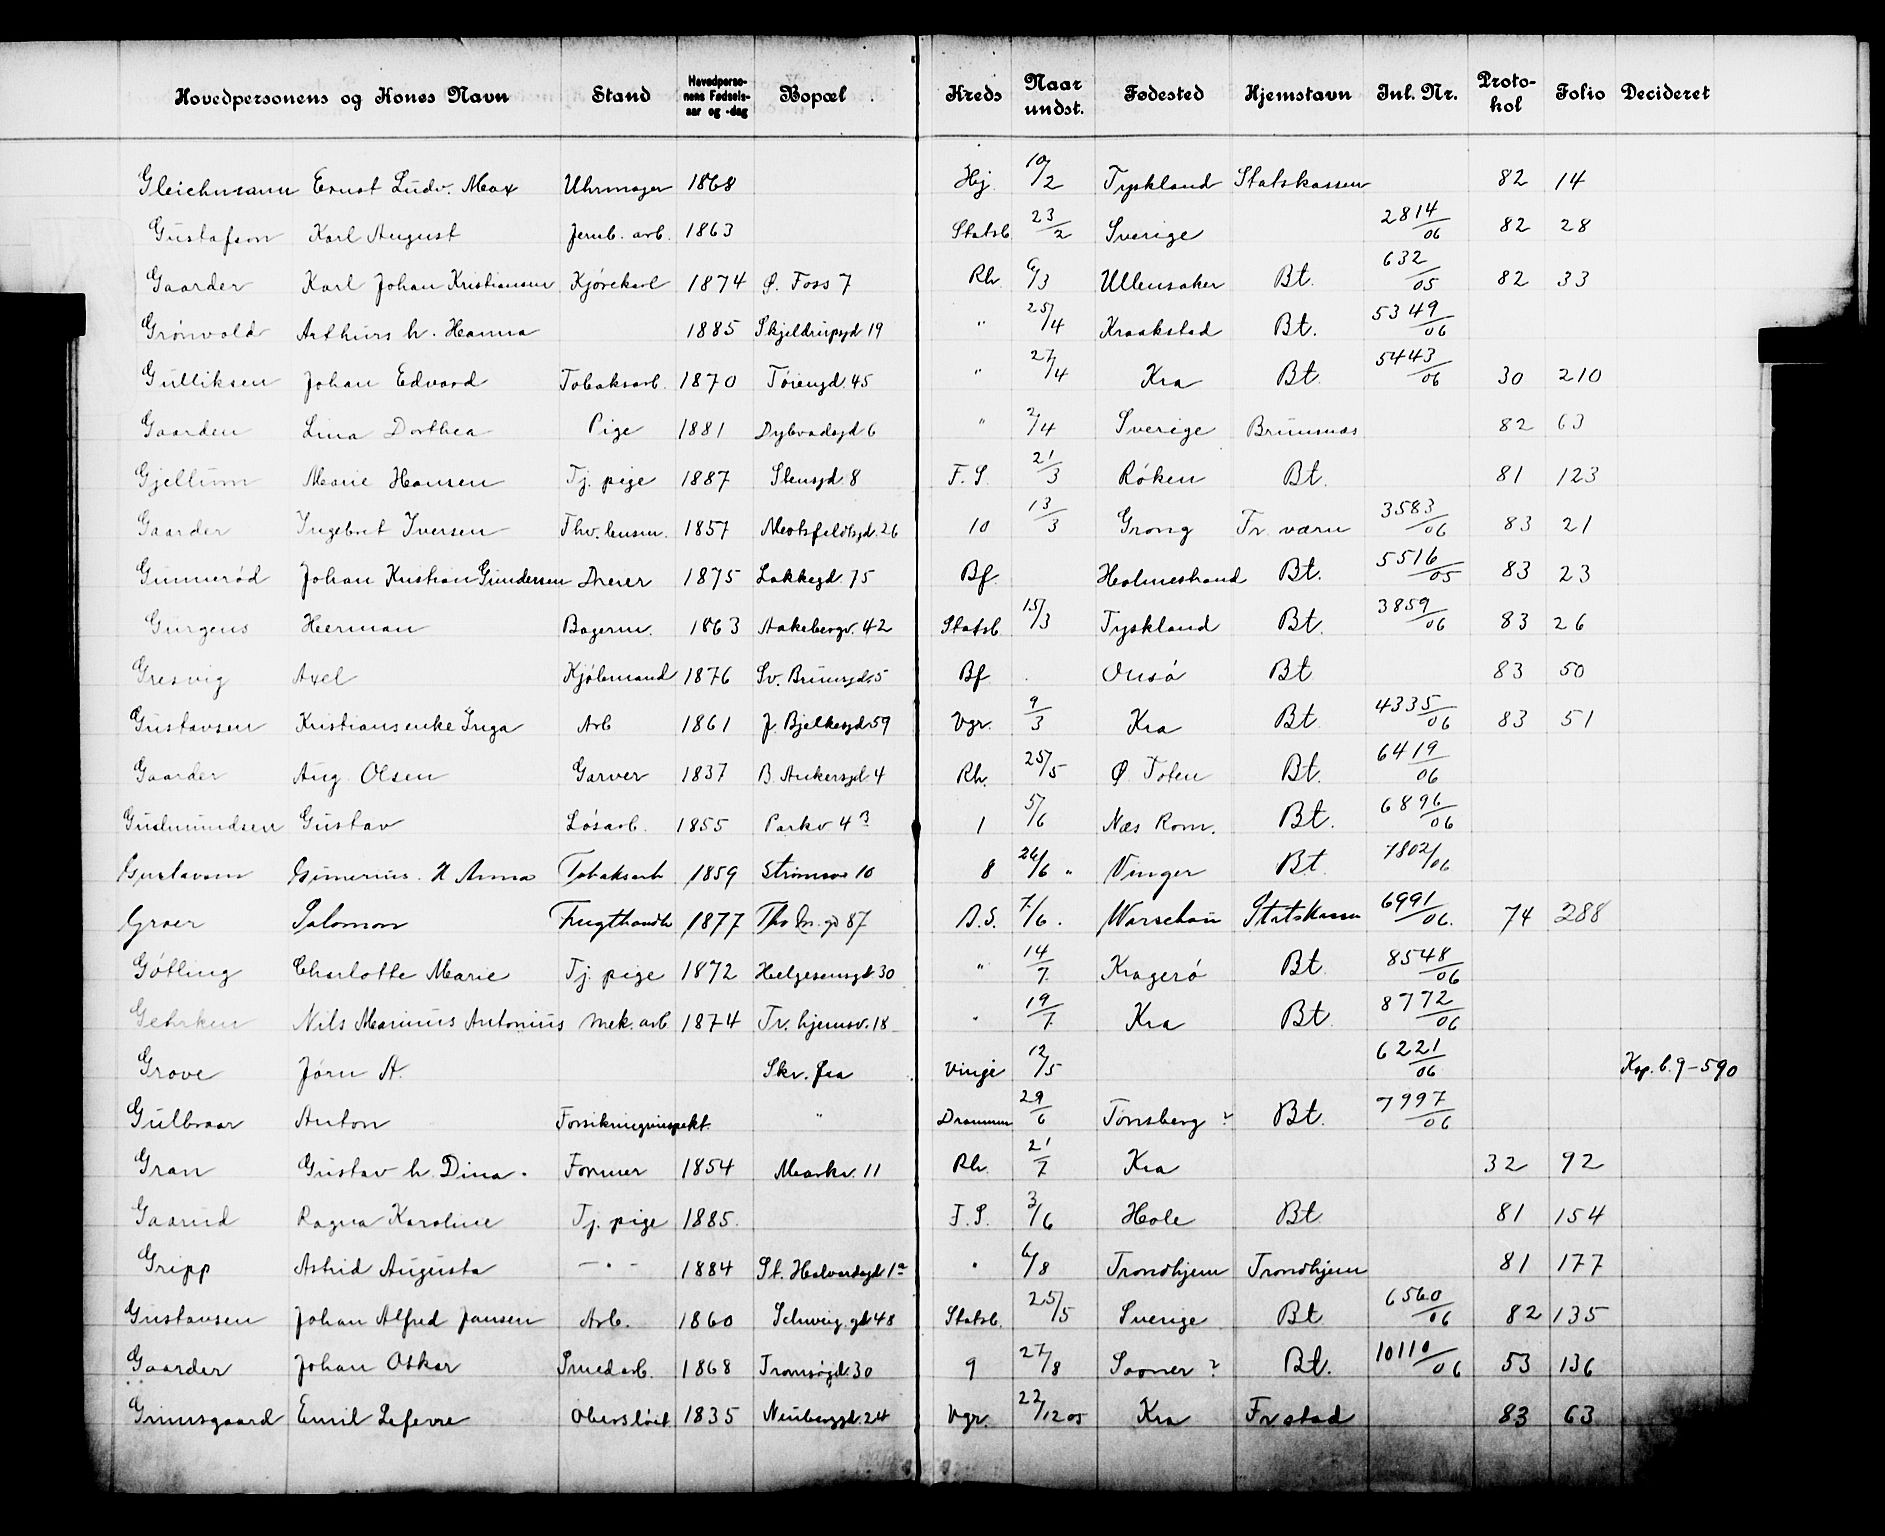 Hovedpersonens og Kones Navn Stand Hovedperso-nens Fødsels-aar og -dag Bopæl Kreds Naar undst. Fødested Hjemstavn Inl. Nr. Proto-kol Folio Decideret
Gleichmann Ernst Ludv. Max Uhrmager 1868 Hj. 10/2 Tyskland Statskassen 82 14
Gustafson Karl August Jernb. arb. 1863 Statsb. 23/2 Sverige 2814/06 82 28
Gaarder Karl Johan Kristiansen Kjørekarl 1874 Ø. Foss 7 Rh. 6/3 Ullensaker Bt. 632/05 82 33
Grönvold Arthurs h. Hanna 1885 Skjeldrupsgd 19 " 25/4 Kraakstad Bt. 5349/06
Gulliksen Johan Edvard Tobaksarb. 1870 Töiengd. 45 " 27/4 Kra Bt. 5443/06 30 210
Gaarden Lina Dorthea Pige 1881 Dybvadsgd 6 " 2/4 Sverige 82 63
Gjellum Marie Hansen Tj. pige 1887 Stensgd. 8 F. S. 21/3 Röken Bt. 81 123
Gaarder Ingebret Iversen 1857 Motzfeldtsgd. 26 10 13/3 Grong Tr. værn 3583/06 83 21
Gunneröd Johan Kristian Gundersen Dreier 1875 Lakkegd. 75 Bf. Holmestrand Bt. 5516/05 83 23
Gurgens Herman Bagerm. 1863 Aakebergv. 42 Statsb. 15/3 Tyskland Bt. 3859/06 83 26
Gresvig Axel Kjöbmand 1876 Sv. Bruunsgd. 5 Bf. Onsö Bt 83 50
Gustavsen Kristiansenke Inga Arb 1861 J. Bjelkesgd 59 Vgr. 9/3 Kra Bt. 4335/06 83 51
Gaarder Aug. Olsen Garver 1837 B. Ankersgd 4 Rh. 25/5 Ø. Toten Bt. 6419/06
Gudmundsen Gustav Lösarb. 1855 Parkv 43 1 5/6 Næs Rom. Bt. 6896/06
Gustavsen Gunerius. H Anna Tobaksarb 1859 Strömsv 10 8 26/6 " Vinger Bt. 7802/06
Graer Salomon Frugthandler 1877 87 A.S. 7/6. Warschau Statskassen 6991/06. 74 288
Götling Charlotte Marie Tj. pige 1872 Helgesensgt 30 " 14/7. Kragerö Bt. 8548/06
Gehrken Nils Marinus Antonius mek. arb 1874 Tr. hjemsv. 18 " 19/7. Kra Bt. 8772/06
Grove Jörn A. Skr. fra Vinje 12/5 6221/06 Kop. b. 9-590
Gulbraar Anton Forsikringsinspekt. " Drammen 29/6 Tönsberg ? Bt. 7997/06
Gran Gustav h. Dina. Former 1854 Markv. 11 Rh. 21/7. Kra 32 92
Gaarud Ragna Karoline Tj. pige 1885. F. S. 3/6 Hole Bt. 81 154
Gripp Astrid Augusta — " — 1884 St. Halvardsgd 1a " 6/8 Trondhjem Trondhjem 81 177
Gustavsen Johan Alfred Jansen Arb. 1860 Schweig. gt 48 Statsb. 25/5 Sverige Bt 6560/06 82 135
Gaarder Johan Oskar Smedarb. 1868 Tromsögd. 30 9 27/8 Sooner ? Bt. 10110/06 53 136
Grimsgaard Emil Lefevre Oberstlöit 1835 Neuberggd. 24 Vgr. 22/12 05 Kra Fr.stad 83 63